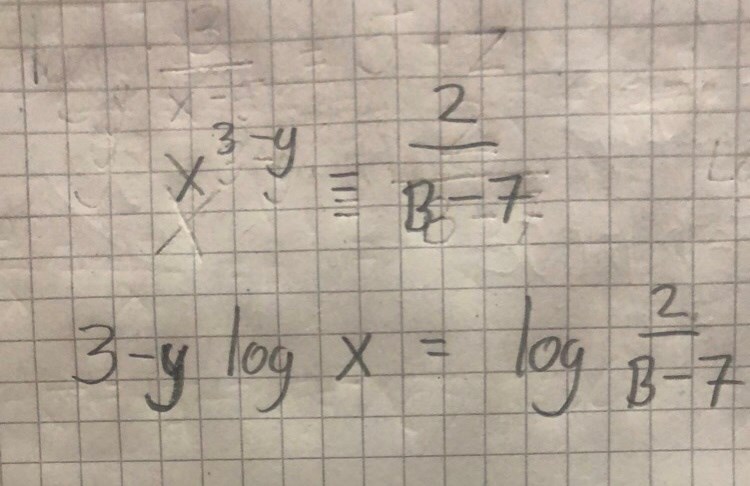 x^{3-y} ≡ \frac{2}{B-7}
3-y log x = log \frac{2}{B-7}